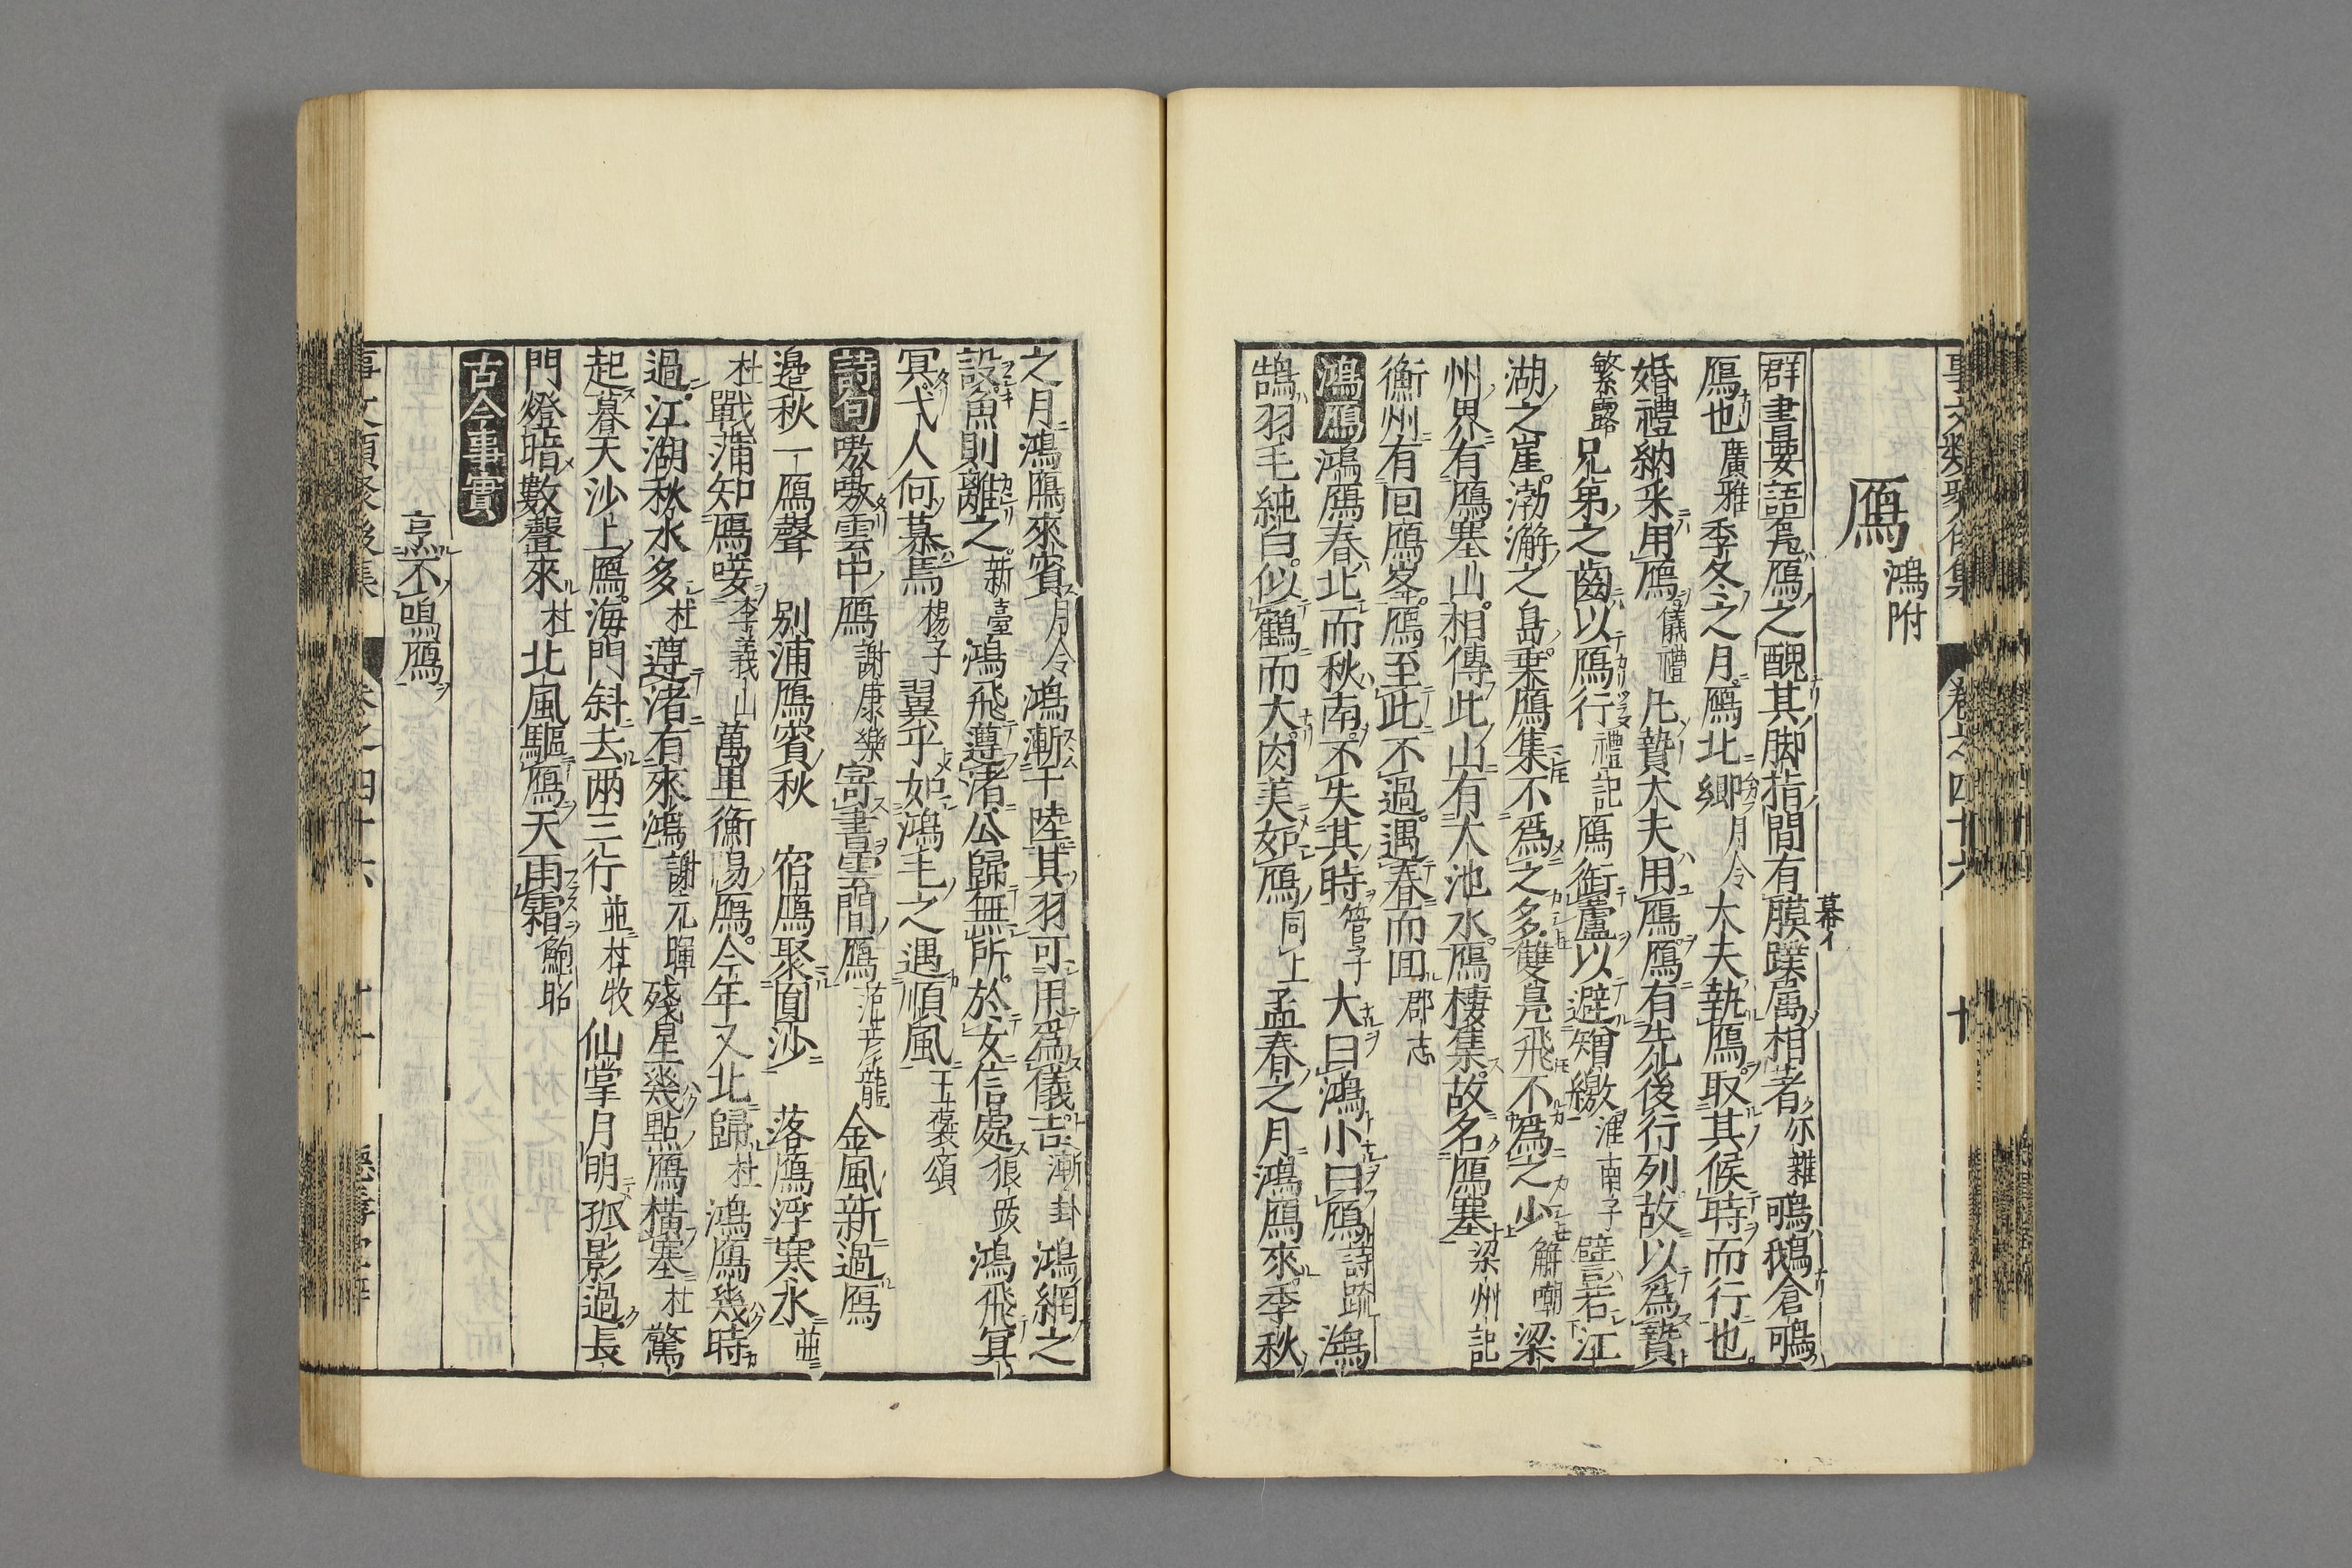 鴈鴻附
群書要語鳧鴈之醜其脚指間有膜蹼属相著尓雜鳴鵝倉鳴
幕イ
鴈也廣雅季冬之月鴈北鄉月令大夫執鴈取其候時而行也
婚禮納采用鴈儀禮凡贄大夫用鴈鴈有先後行列故以爲贄
繁露兄弟之齒以鴈行禮記鴈銜蘆以避矰繳淮南子譬若江
湖之崖渤澥之島乗鴈集不爲之多雙鳧飛不爲之少解嘲梁
州界有鴈塞山相傳此山有大池水鴈棲集故名鴈塞梁州記
衡州有回鴈峯鴈至此不過遇春而回郡志
鴻鴈鴻鴈春北而秋南不失其時管子大曰鴻小曰鴈詩疏鴻
鵠羽毛純白似鶴而大肉美如鴈同上孟春之月鴻鴈來季秋
之月鴻鴈來賓月令鴻漸于陸其羽可用爲儀吉漸卦鴻網之
設魚則離之新臺鴻飛遵渚公歸無所於女信處狼跋鴻飛冥
冥弋人何慕焉楊子翼乎如鴻毛之遇順風王褒頌
詩句嗷嗷雲中鴈謝康樂寄書雲間鴈范彦龍金風新過鴈
邊秋一鴈聲　別浦鴈賓秋　宿鴈聚圓沙　落鴈浮寒水並
杜戰蒲知鴈唼李義山萬里衡陽鴈今年又北歸杜鴻鴈幾時
過江湖秋水多杜遵渚有來鴻謝元暉殘星幾點鴈橫塞杜驚
起暮天沙上鴈海門斜去两三行並杜牧仙掌月明孤影過長
門燈暗數聲來杜北風驅鴈天雨霜鮑昭
古今事實
烹不鳴鴈